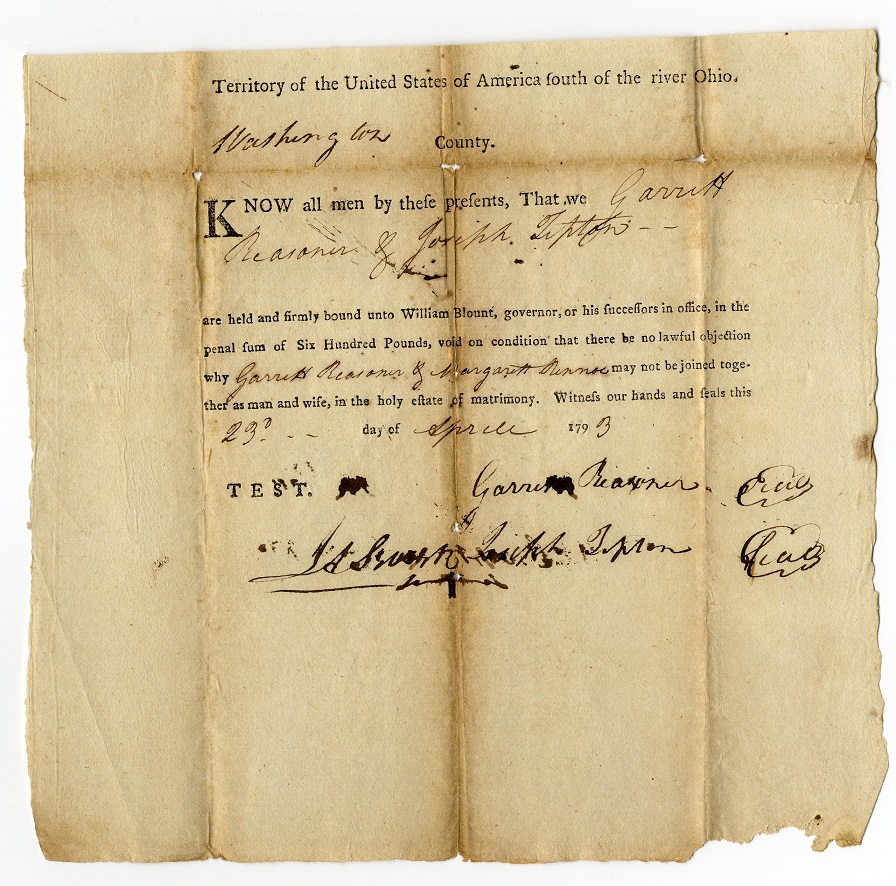 Territory of the United States of America ſouth of the river Ohio.
Washington County.
KNOW all men by theſe preſents, That we Garrett
Reasoner & Joseph Tipton --
are held and firmly bound unto William Blount, governor, or his ſucceſſors in office, in the
penal ſum of Six Hundred Pounds, void on condition that there be no lawful objection
why Garrett Reasoner & Margarett may not be joined toge-
ther as man and wife, in the holy eſtate of matrimony. Witneſs our hands and ſeals this
23d -- day of Aprile 1793
TEST. Garrett Reasoner Seal
Joseph Tipton Seal